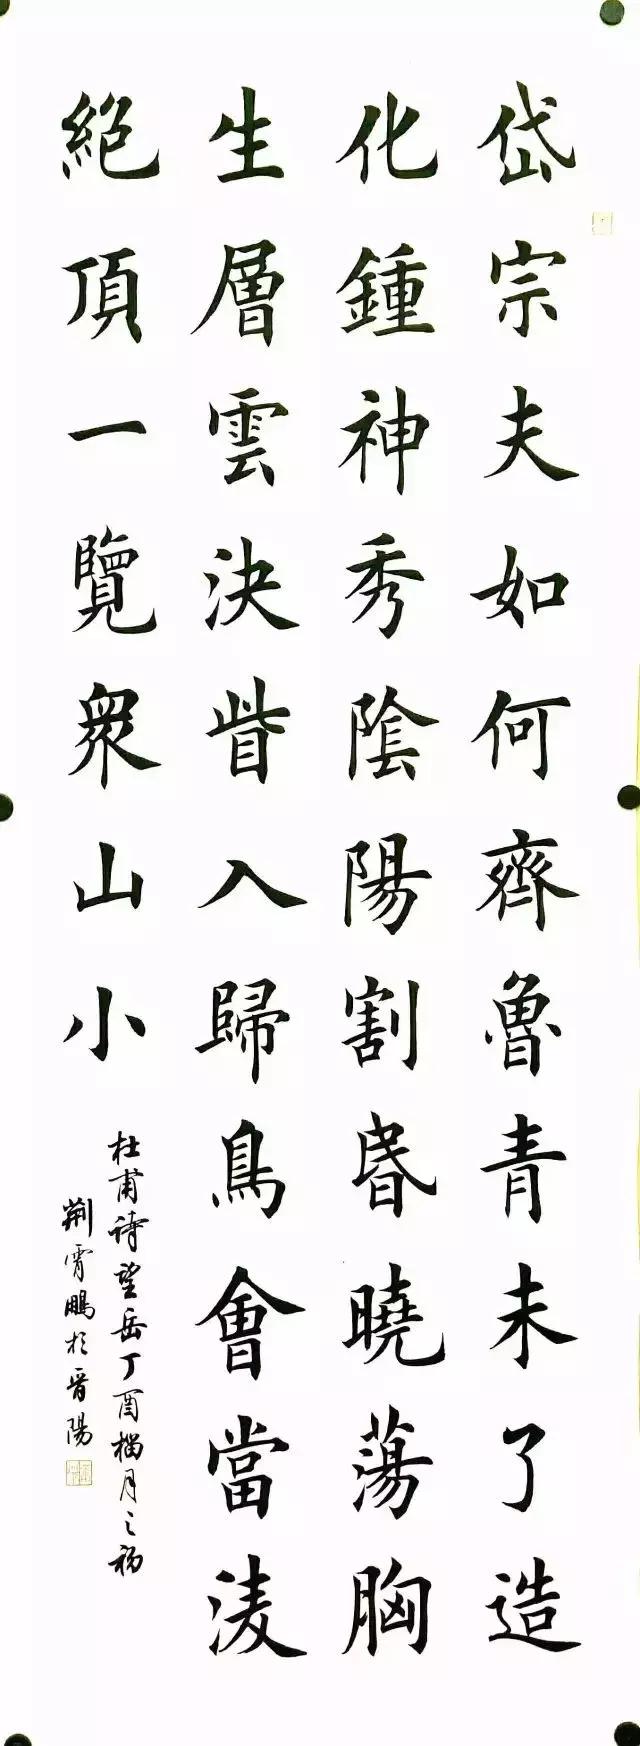 岱宗夫如何齊魯青未了造
化鍾神秀陰陽割昬曉蕩胸
生層雲決眥入歸鳥會當淩
絕頂一覽衆山小
杜甫詩望岳丁酉榴月之初
荆霄鵬於晉陽